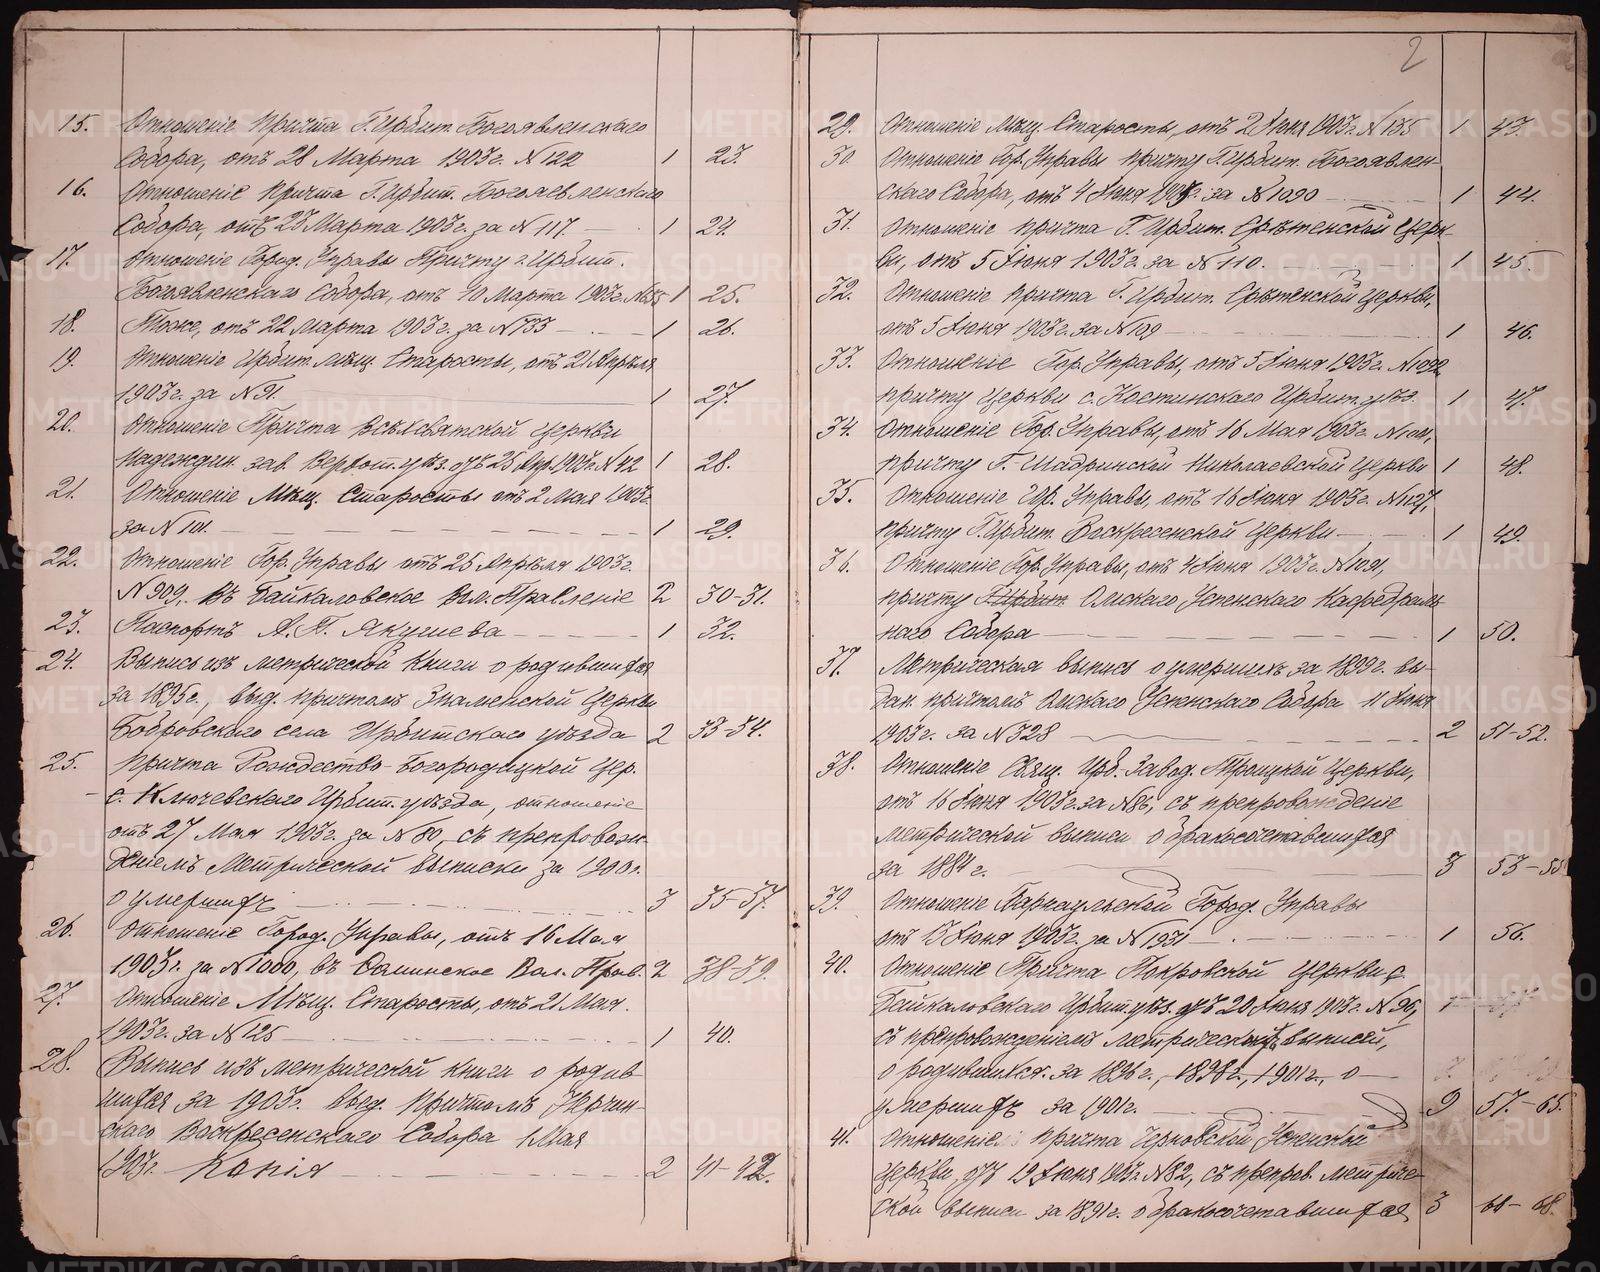 15. Отношеніе Причта Г. Ирбит. Богоявленскаго
Собора, отъ 28 Марта 1903 г. № 122 1 23.
16. Отношеніе Причта Г. Ирбит. Богоявленскаго
Собора, отъ 23 Марта 1903 г. за № 117. 1 24.
17. Отношеніе Город. Управы Причту г. Ирбит.
Богоявленскаго Собора, отъ 10 Марта 1903 г. 1 25.
18. Тоже, отъ 22 Марта 1903 г. за № 733 1 26.
19. Отношеніе Ирбит. Мѣщ. Старосты, отъ 21 Апрѣля
1903 г. за № 91. 1 27.
20. Отношеніе Причта Всѣхсвятской Церкви
Надеждин. зав. Верхот. уѣз. отъ 25 Апр. 1903 г. № 42 1 28.
21. Отношеніе Мѣщ. Старосты отъ 2 Мая 1903 г.
за № 101. 1 29.
22. Отношеніе Гор. Управы отъ 25 Апрѣля 1903 г.
№ 909, въ Байкаловское Вол. Правленіе 2 30-31.
23. Паспортъ А. П. Якушева 1 32.
24. Выпись изъ метрической книги о родившихся
за 1895 г., выд. причтомъ Знаменской Церкви
Бобровскаго села Ирбитскаго уѣзда 2 33-34.
25. Причта Рождество-Богородицкой Цер.
с. Ключевскаго Ирбит. уѣзда, отношеніе
отъ 27 Мая 1903 г. за № 80, съ препровож-
деніемъ Метрической выписки за 1900 г.
о умершихъ 3 35-37.
26. Отношеніе Город. Управы, отъ 16 Мая
1903 г. за № 1000, въ Вол. Прав. 2 38-39.
27. Отношеніе Мѣщ. Старосты, отъ 21 Мая.
1903 г. за № 125 1 40.
28. Выпись изъ метрической книги о родив
шихся за 1903 г. выд. Причтомъ Нерчин-
скаго Воскресенскаго Собора Мая
1903 г. Копія 2 41-42.
2
29. Отношеніе Мѣщ. Старосты, отъ 2 Іюня 1903 г. № 135 1 43.
30. Отношеніе Гор. Управы причту Г. Ирбит. Богоявлен-
скаго Собора, отъ 4 Іюня 1903 г. за № 1090 1 44.
31. Отношеніе причта Г. Ирбит. Срѣтенской Церк-
ви, отъ 5 Іюня 1903 г. за № 110. 1 45.
32. Отношеніе причта Г. Ирбит. Срѣтенской Церкви,
отъ 5 Іюня 1903 г. за № 109 1 46.
33. Отношеніе Гор. Управы, отъ 5 Іюня 1903 г. № 1092
причту Церкви с. Костинскаго Ирбит. уѣз. 1 47.
34. Отношеніе Гор. Управы, отъ 16 Мая 1903 г.
причту Г. Шадринской Николаевской Церкви 1 48.
35. Отношеніе Гор. Управы, отъ 16 Іюня 1903 г. № 1127,
причту Г. Ирбит. Воскресенской Церкви 1 49.
36. Отношеніе Гор. Управы, отъ 4 Іюня 1903 г. № 1091,
причту Г. Ирбит. Омскаго Успенскаго Кафедраль-
наго Собора 1 50.
37. Метрическая выпись о умершихъ за 1899 г. вы-
дан. причтомъ Омскаго Успенскаго Собора 11 Іюня
1903 г. за № 328 2 51-52.
38. Отношеніе Свящ. Ирб. Завод. Троицкой Церкви,
отъ 16 Іюня 1903 г. за № 86, съ препровожденіе
метрической выписи о бракосочетавшихся
за 1884 г. 3 53-55
39. Отношеніе Барнаульской Город. Управы
отъ 13 Іюня 1903 г. за № 1931 1 56.
40. Отношеніе Причта Покровской Церкви с.
Байкаловскаго Ирбит. уѣз. отъ 20 Іюня 1903 г. № 96, 1
съ препровожденіемъ метрическихъ выписей,
о родившихся за 1896 г., 1898 г., 1901 г., о
умершихъ за 1901 г. 9 57-65.
41. Отношеніе причта Черновской Успенской
Церкви, отъ 19 Іюня 1903 г. № 82, съ препров. метриче-
ской выписи за 1891 г. о бракосочетавшихся 3 66-68.
METRIKI.GASO-URAL.RU